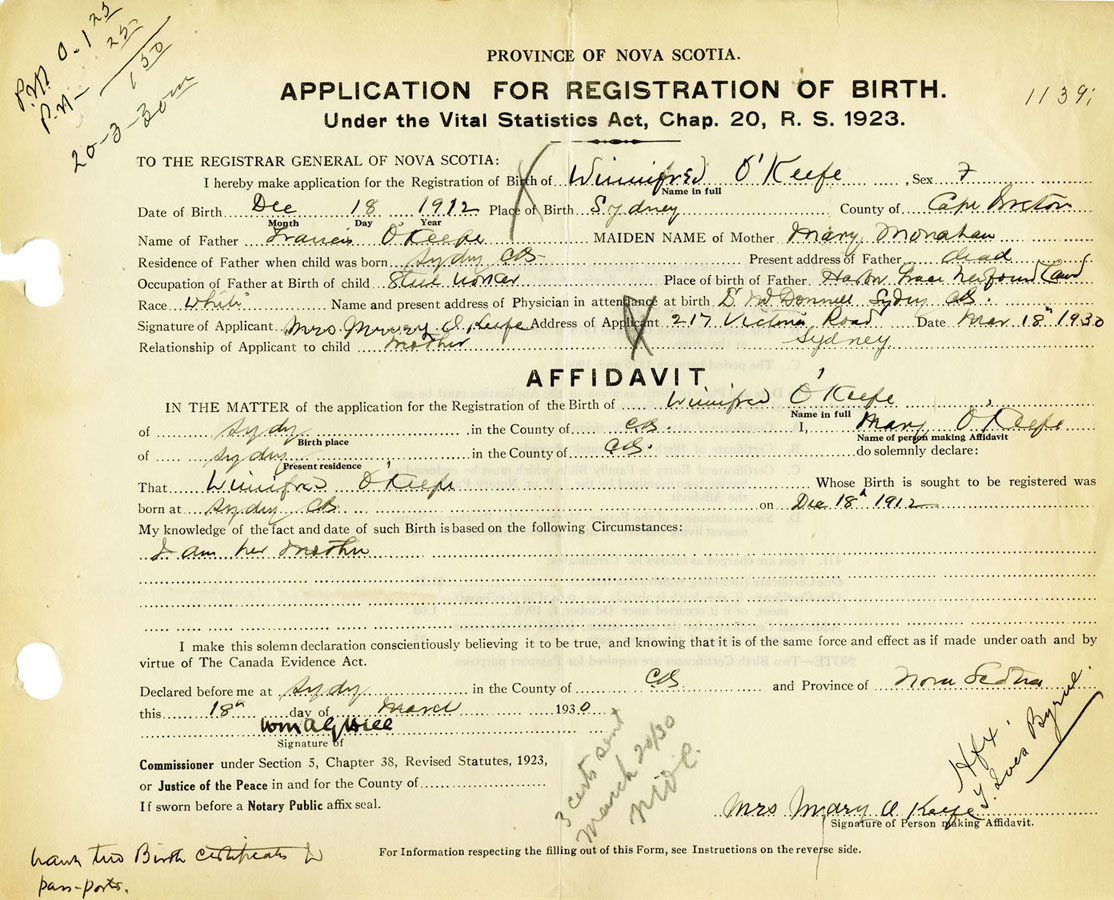 P.N. 0-1 25
P.N- 25
1 50
20-3-30 m
PROVINCE OF NOVA SCOTIA.
APPLICATION FOR REGISTRATION OF BIRTH.
1139
Under the Vital Statistics Act, Chap. 20, R. S. 1923.
TO THE REGISTRAR GENERAL OF NOVA SCOTIA:
I hereby make application for the Registration of Birth of Winnifred O'Keefe, Sex F
Name in full
Date of Birth Dec 18 1912 Place of Birth Sydney County of Cape Breton
Month Day Year
Name of Father Francis O'Keefe MAIDEN NAME of Mother Mary Monahan
Residence of Father when child was born Sydny CB Present address of Father dead
Occupation of Father at Birth of child Steel worker Place of birth of Father Harbor Grace Newfound Land
Race White Name and present address of Physician in attendance at birth Dr McDonnell Sydney CB.
Signature of Applicant Mrs Mary O'Keefe Address of Applicant 217 Victoria Road Date Mar 18th 1930
Relationship of Applicant to child mother Sydney
AFFIDAVIT
IN THE MATTER of the application for the Registration of the Birth of Winnifred O'Keefe
Name in full
of Sydny in the County of CB. I, Mary O'Keefe
Birth place Name of person making Affidavit
of Sydny in the County of CB. do solemnly declare:
Present residence
That Winnifred O'Keefe Whose Birth is sought to be registered was
born at Sydny CB on Dec 18th 1912
My knowledge of the fact and date of such Birth is based on the following Circumstances:
I am her mother
I make this solemn declaration conscientiously believing it to be true, and knowing that it is of the same force and effect as if made under oath and by
virtue of The Canada Evidence Act.
Declared before me at Sydny in the County of CB and Province of Nova Scotia
this 18th day of March 1930
Wm A G Hill
Signature of
Commissioner under Section 5, Chapter 38, Revised Statutes, 1923,
or Justice of the Peace in and for the County of
If sworn before a Notary Public affix seal.
3 certs sent
March 20/30
Hfx
Byrne
Mrs Mary O Keefe
Signature of Person making Affidavit.
For Information respecting the filling out of this Form, see Instructions on the reverse side.
want two Birth certificates
pass-ports.